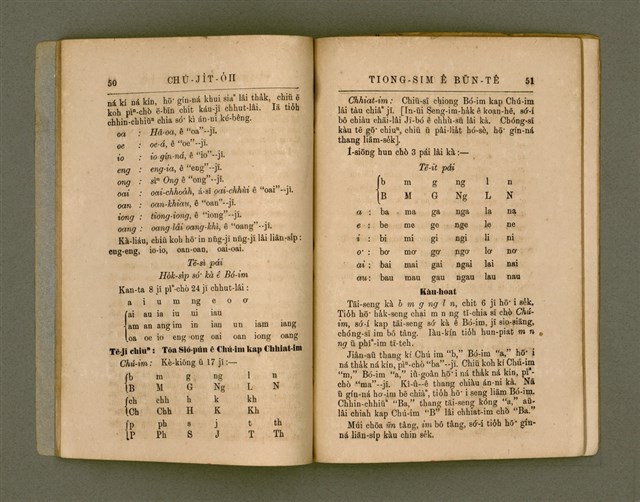 50 CHÚ-JI̍T-O̍H
ná kí ná kín, hō͘ gín-ná khui siaⁿ lâi tha̍k, chiū ē
koh pîⁿ-chò ē-bīn chit káu-jī chhut-lâi. Iā tio̍h
chhin-chhiūⁿ chia só͘ kì án-ni kè-bêng.
oa : Hâ-oa, ê “oa”--jī.
oe : oe-á, ê “oe”--jī.
io : io gín-ná, ê “io”--jī.
eng : eng-ia, ê “eng”--jī.
ong : sìⁿ Ong ê “ong”--jī.
oai : oai-chhoa̍h, á-sī oai-chhùi ê “oai”--jī.
oan : oan-khiau, ê “oan”--jī.
iong : tiong-iong, ê “iong”--jī.
oang : oang-lâi oang-khì, ê “oang”--jī.
Kà-liáu, chiū koh hō͘ in nn̄g-jī nn̄g-jī lâi liān-si̍p :
eng-eng, io-io, oan-oan, oai-oai.
Tē-sì pái
Ho̍k-si̍p só͘ kà ê Bó-im
Kan-ta 8 jī pîⁿ-chò 24 jī chhut-lâi :
a i u m ng e o o͘
ai au ia iu ui iau
am an ang im in ian un iam iang
oa oe io eng ong oai oan iong oang
Tē-jī chiuⁿ : Tōa Sió-pún ê Chú-im kap Chhiat-im
Chú-im : Kè-kiōng ū 17 jī :—
b m g ng l n
B M G Ng L N
ch chh h k kh
Ch Chh H K Kh
p ph s j t th
P Ph S J T Th
TIONG-SIM Ê BŪN-TÊ 51
Chhiat-im : Chiū-sī chiong Bó-im kap Chú-im
lâi tàu chiâⁿ jī. [In-ūi Seng-im-ha̍k ê koan-hē, só͘-í
bô chiàu chāi-lâi Jī-bó ê chhù-sū lâi kà. Chóng-sī
kàu tē gō͘ chiuⁿ, chiū ū pâi-lia̍t hó-sè, hō͘ gín-ná
thang liām-se̍k].
Í-siōng hun chò 3 pái lâi kà :—
Tē-it pái
b m g ng l n
B M G Ng L N
a : ba ma ga nga la na
e : be me ge nge le ne
i : bi mi gi ngi li ni
o͘ : bo͘ mo͘ go͘ ngo͘ lo͘ no͘
ai : bai mai gai ngai lai nai
au : bau mau gau ngau lau nau
Kàu-hoat
Tāi-seng kà b m g ng l n, chit 6 jī hō͘ i se̍k.
Tio̍h hō͘ ha̍k-seng chai m n ng tī-chia sī chò Chú-
im, só͘-í kap tāi-seng só͘ kà ê Bó-im, jī sio-siāng,
chóng-sī im bô tâng. Iàu-kín tio̍h hun-piat m n
ng ū phīⁿ-im tī-teh.
Jiân-āu thang kí Chú im “b,” Bó-im “a,” hō͘ i
ná tha̍k ná kín, pîⁿ-chò “ba”--jī. Chiū koh kí Chú-im
“m,” Bó-im “a,” iû-goân hō͘ i ná tha̍k ná kín, pîⁿ-
chò “ma”--jī. Kî-û--ê thang chiàu án-ni kà. Nā
ū gín-ná ho͘-im bē chiâⁿ, tio̍h hō͘ i seng liām Bó-im.
Chhin-chhiūⁿ “Ba,” thang tāi-seng kóng “a,” āu-
lâi chiah kap Chú-im “B” lâi chhiat-im chò “Ba.”
Múi chōa ūn tâng, im bô tâng, só͘-í tio̍h hō͘ gín-
ná liān-si̍p kàu chin se̍k.